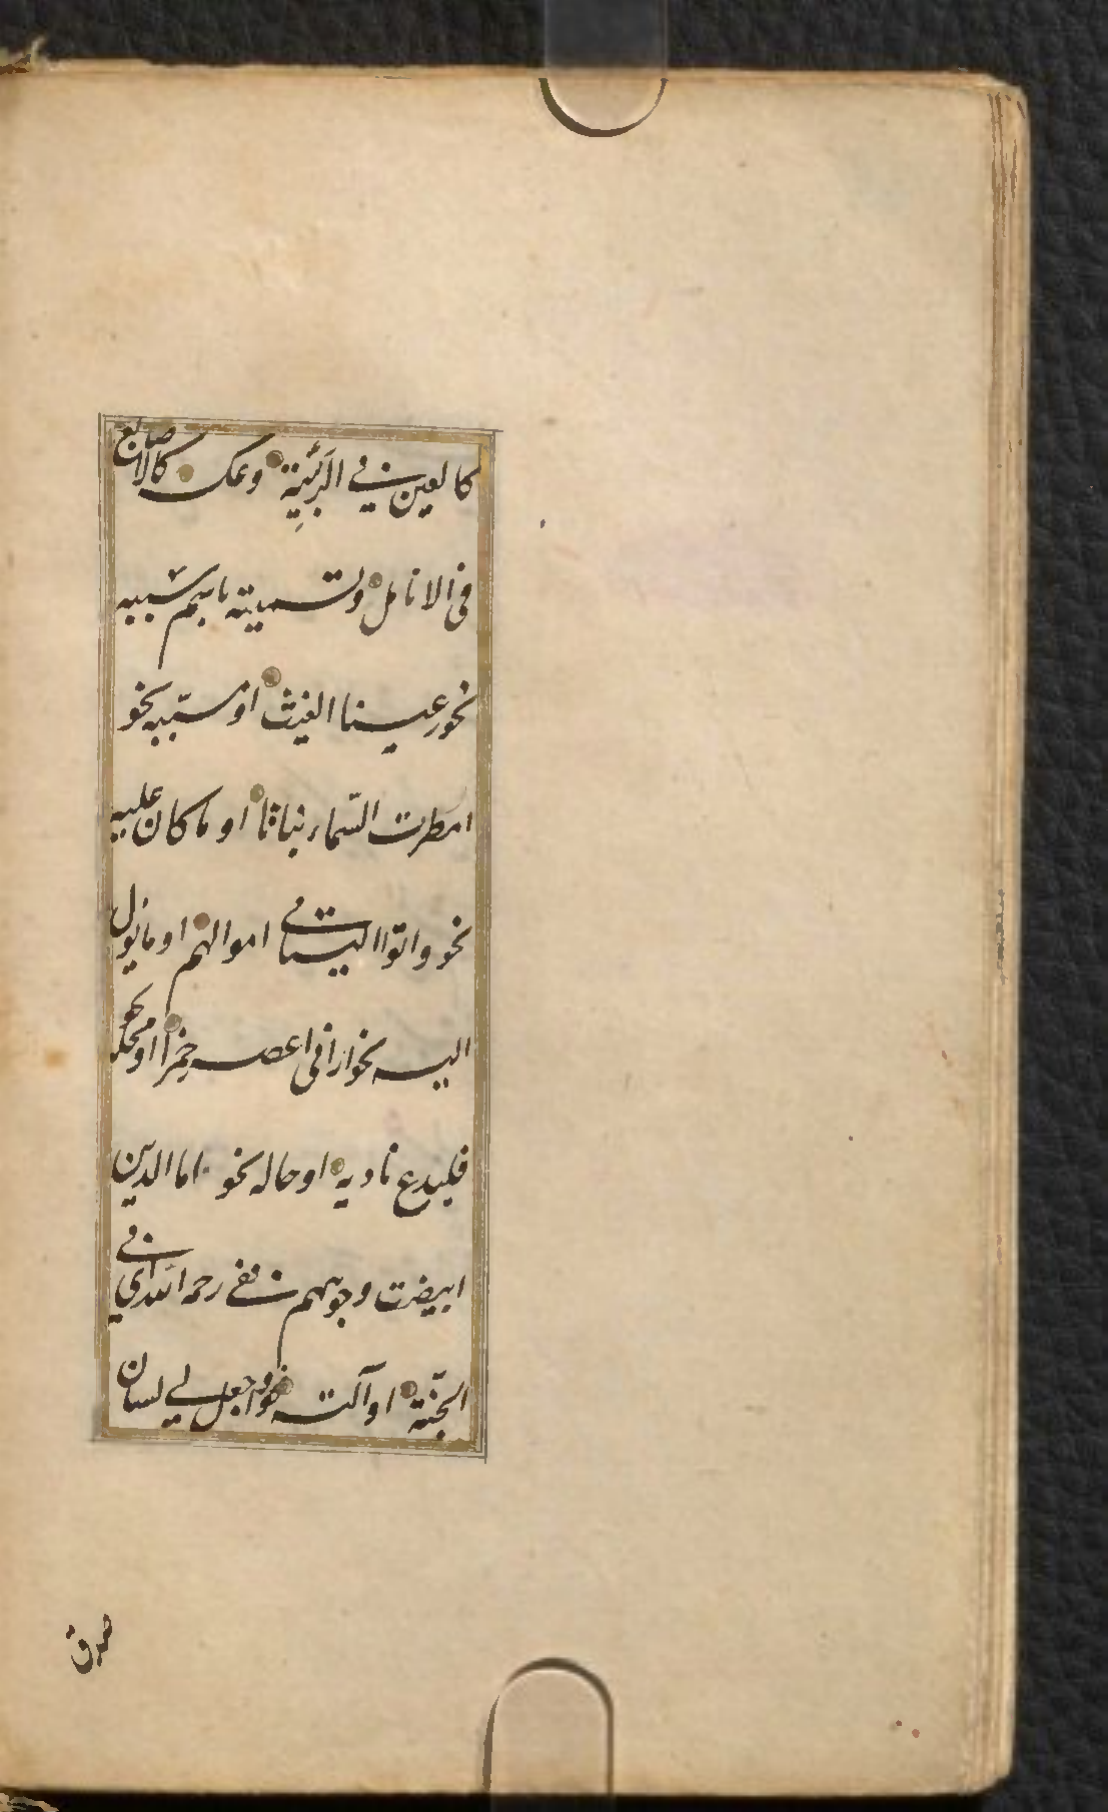 كالعين في الربيئة وعكسه كالاصابع
في الانامل وتسميته باسم سببه
نحو رعينا الغيث او مسببه نحو
امطرت السماء نباتا او ما كان عليه
نحو واتوا اليتامى اموالهم او ما يؤل
اليه نحو اراني اعصر خمرا او محله نحو
فليدع ناديه او حاله نحو اما الذين
ابيضت وجوههم ففي رحمة الله اي في
الجنة او آلته نحو واجعل لي لسان
صدق